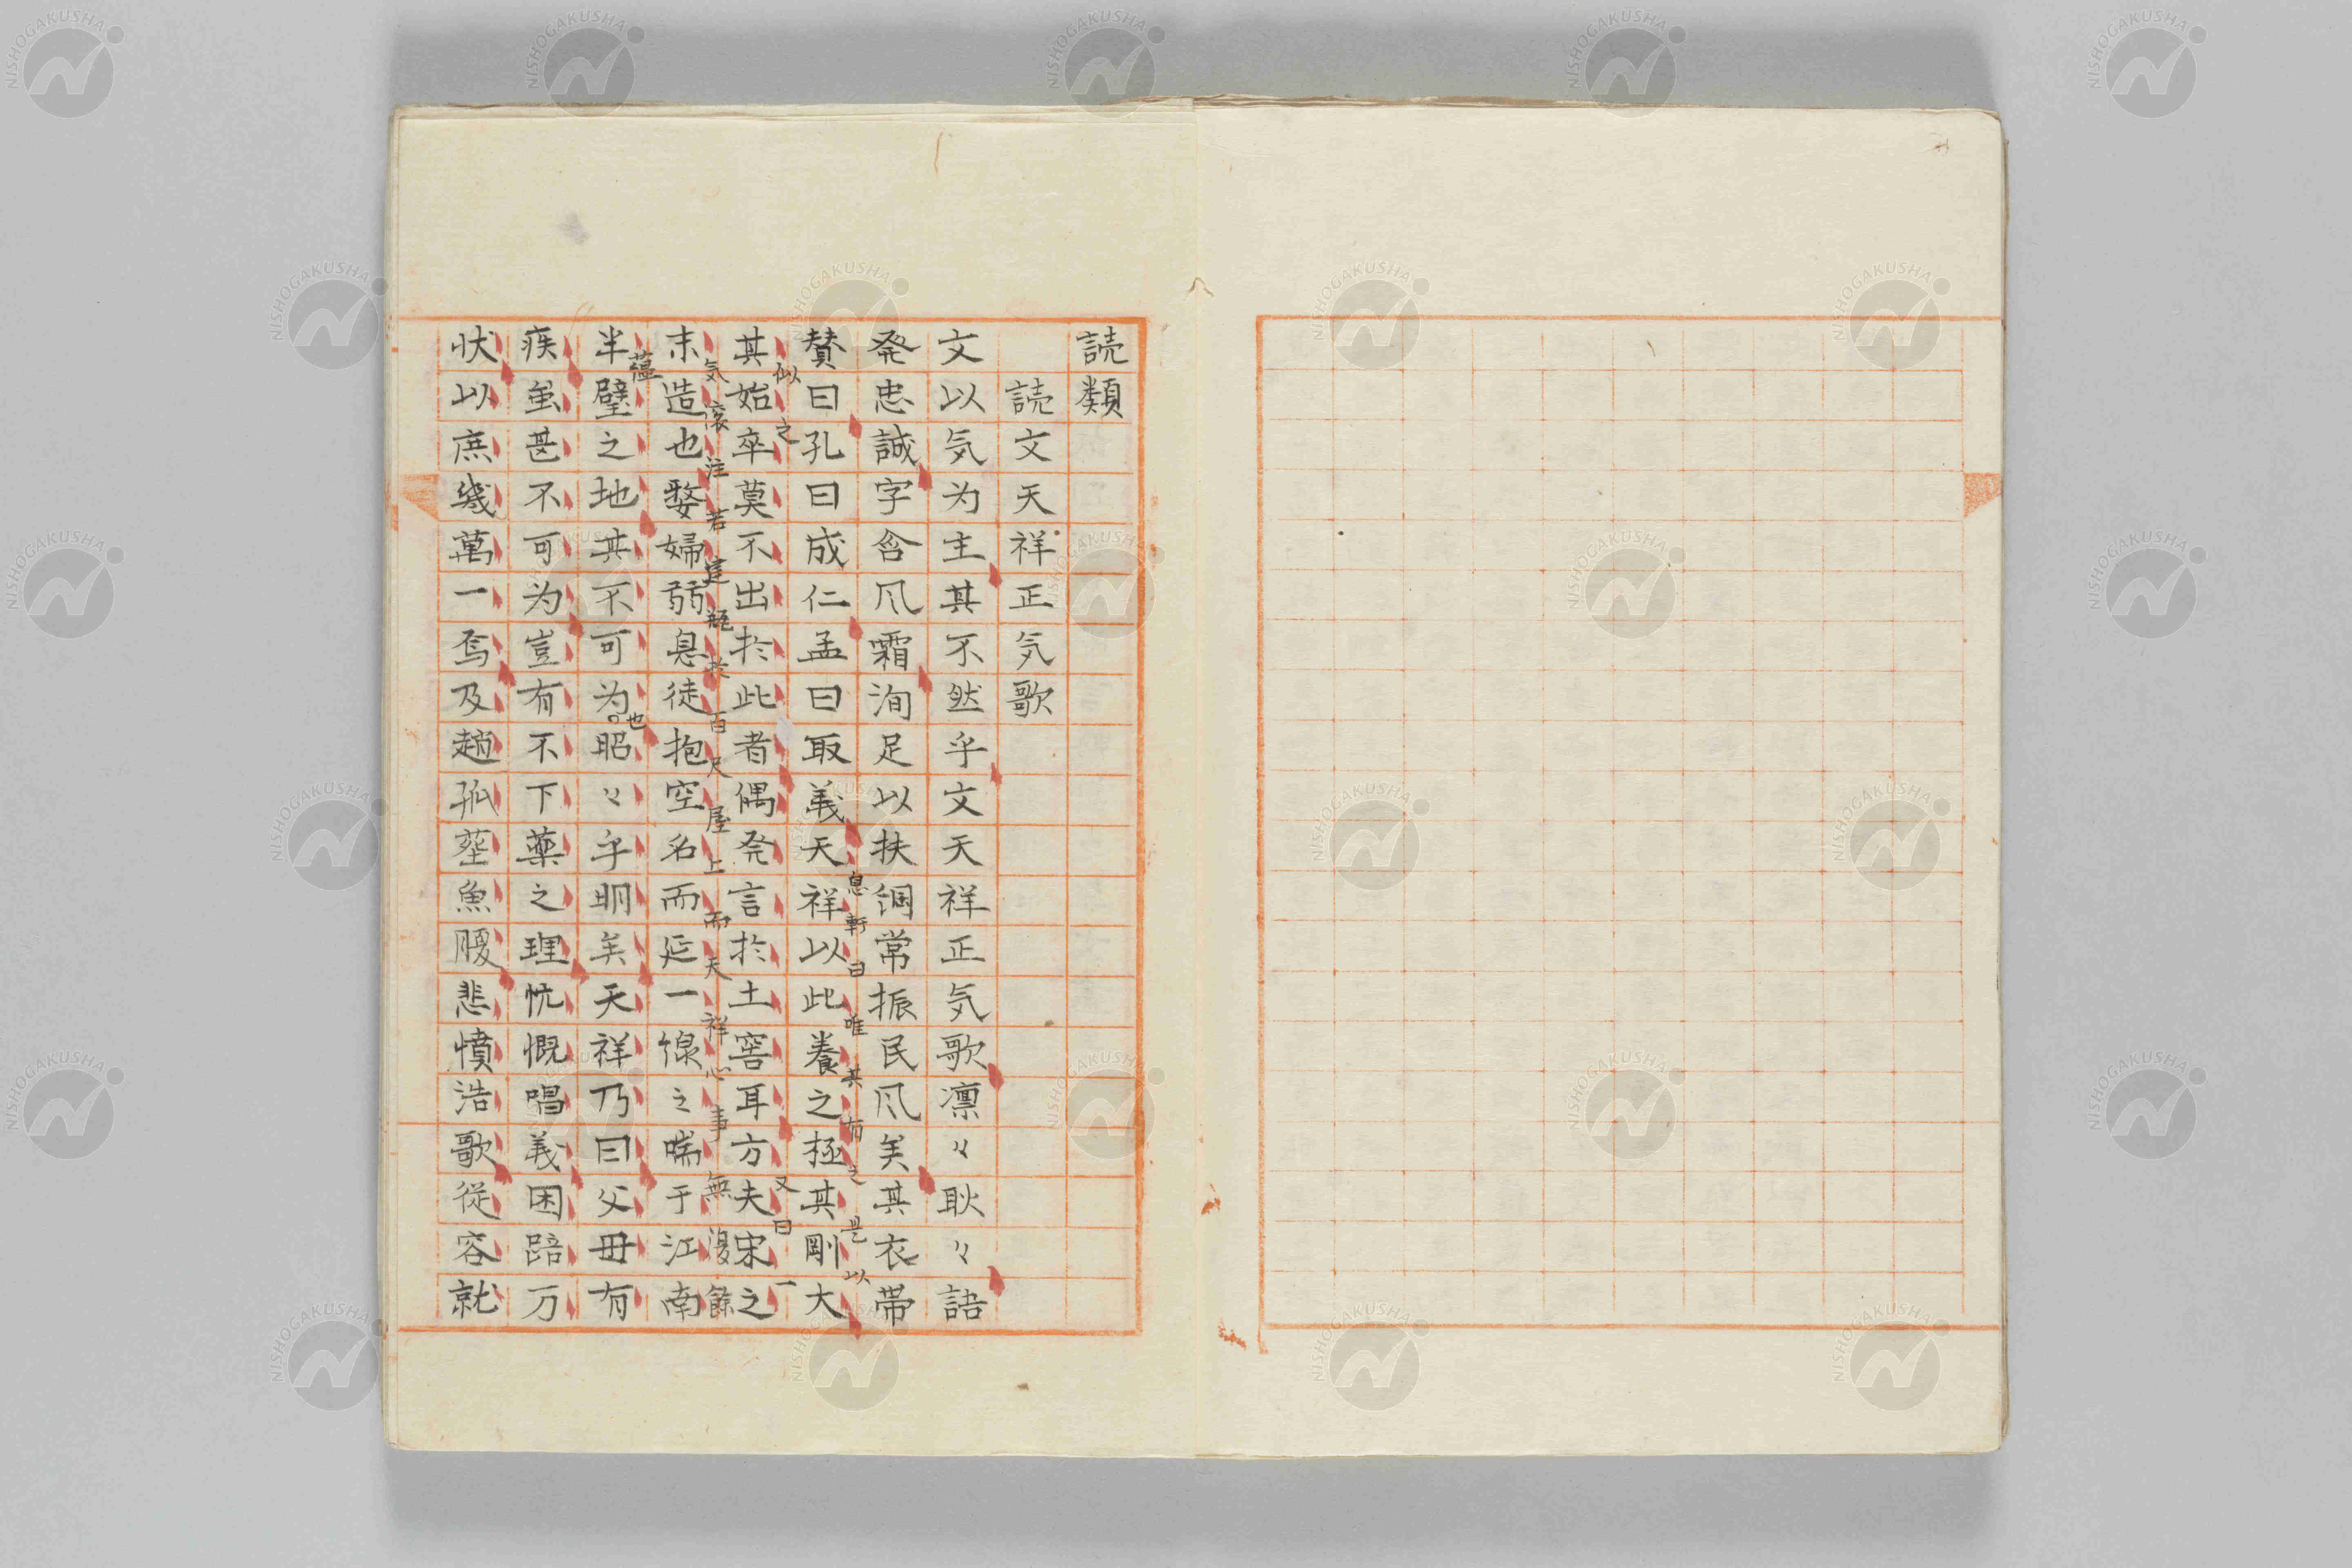 読類
読文天祥正気歌
文以気为主其不然乎文天祥正気歌凛々耿々語
発忠誠字含凨霜洵足以扶綱常振民凨矣其衣帯
賛曰孔曰成仁孟曰取義天祥以此養之極其剛大
息軒曰唯其有之是以
似之
其始卒莫不出於此者偶発言於土窖耳方夫宋之
又曰一
気滚注若建瓴於百尺屋上而天祥心事無復餘
蘊
末造也嫠婦弱息徒抱空名而延一線之喘于江南
半壁之地其不可为也昭々乎明矣天祥乃曰父毋有
疾虽甚不可为豈有不下薬之理忼慨唱義困踣万
状以庶幾萬一焉及趙孤塟魚腹悲憤浩歌従容就
NISHOGAKUSHA